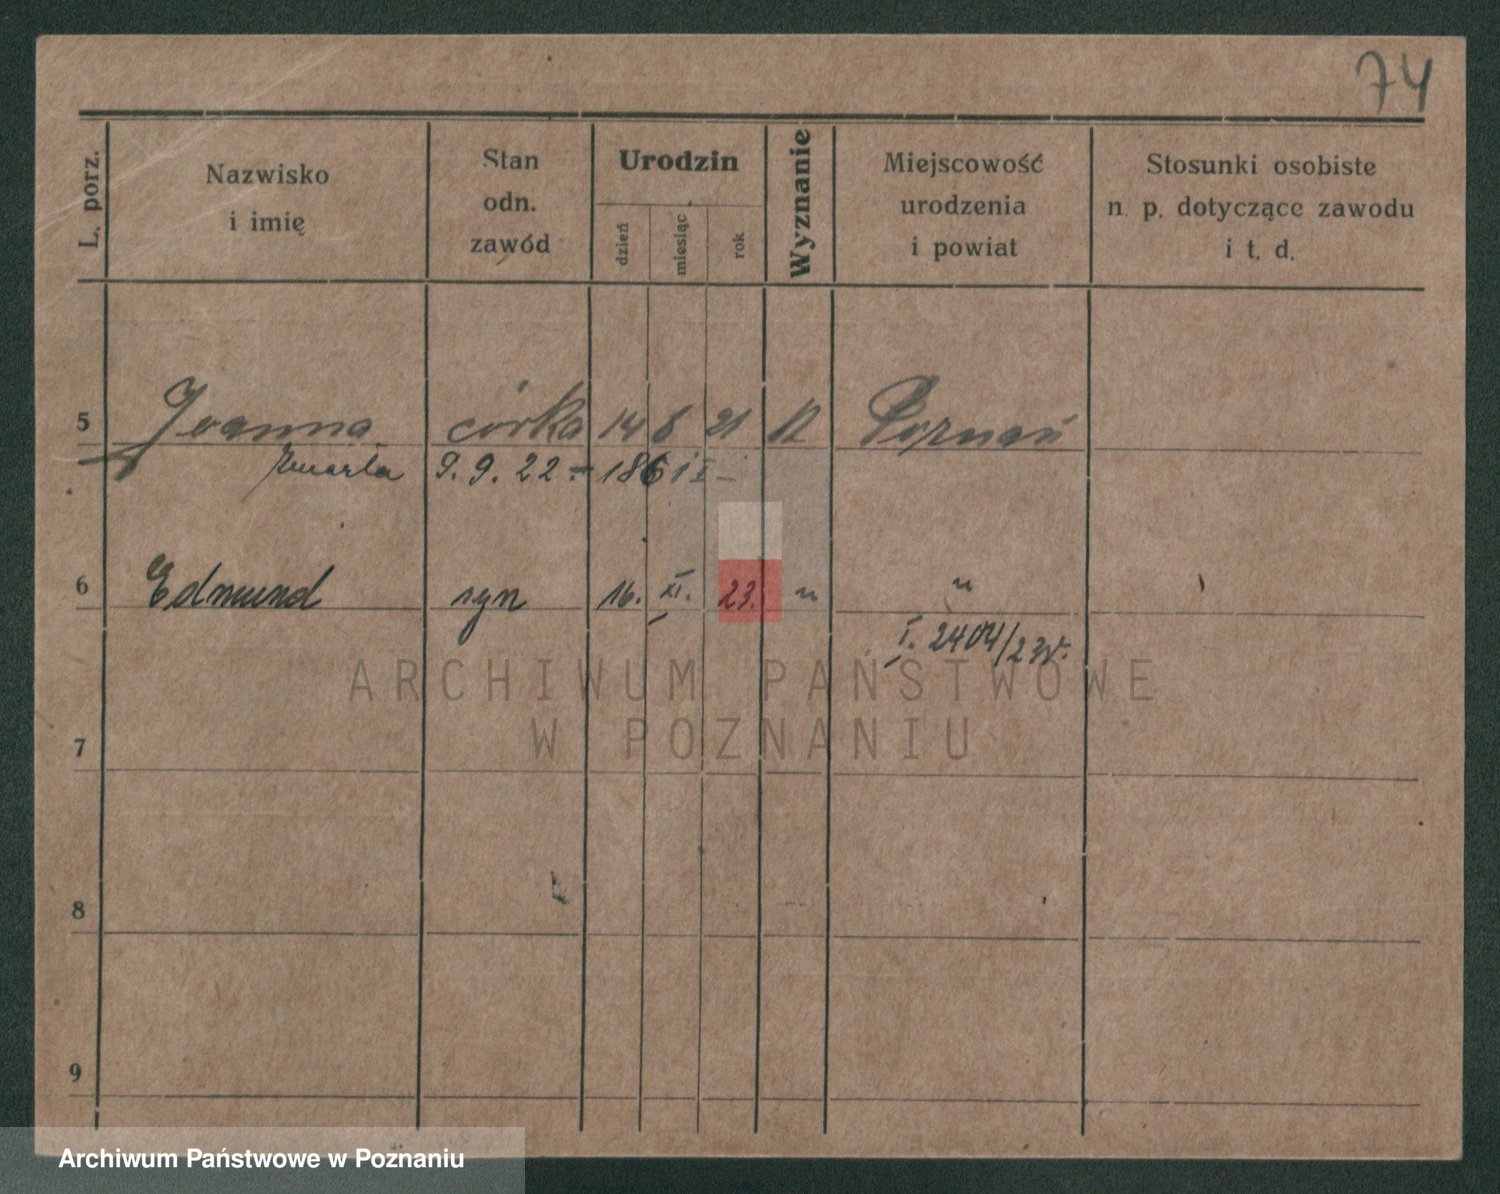 74
L. porz. Nazwisko i imię Stan odn. zawód Urodzin dzień miesiąc rok Wyznanie Miejscowość urodzenia i powiat Stosunki osobiste n. p. dotyczące zawodu i t. d.
5 Joanna córka 14 8 21 Poznań
zmarła 9. 9. 22 -
6 Edmund syn 16. XI. 23. " "
I. 2404/23
ARCHIWUM PAŃSTWOWE
W POZNANIU
7
8
9
Archiwum Państwowe w Poznaniu